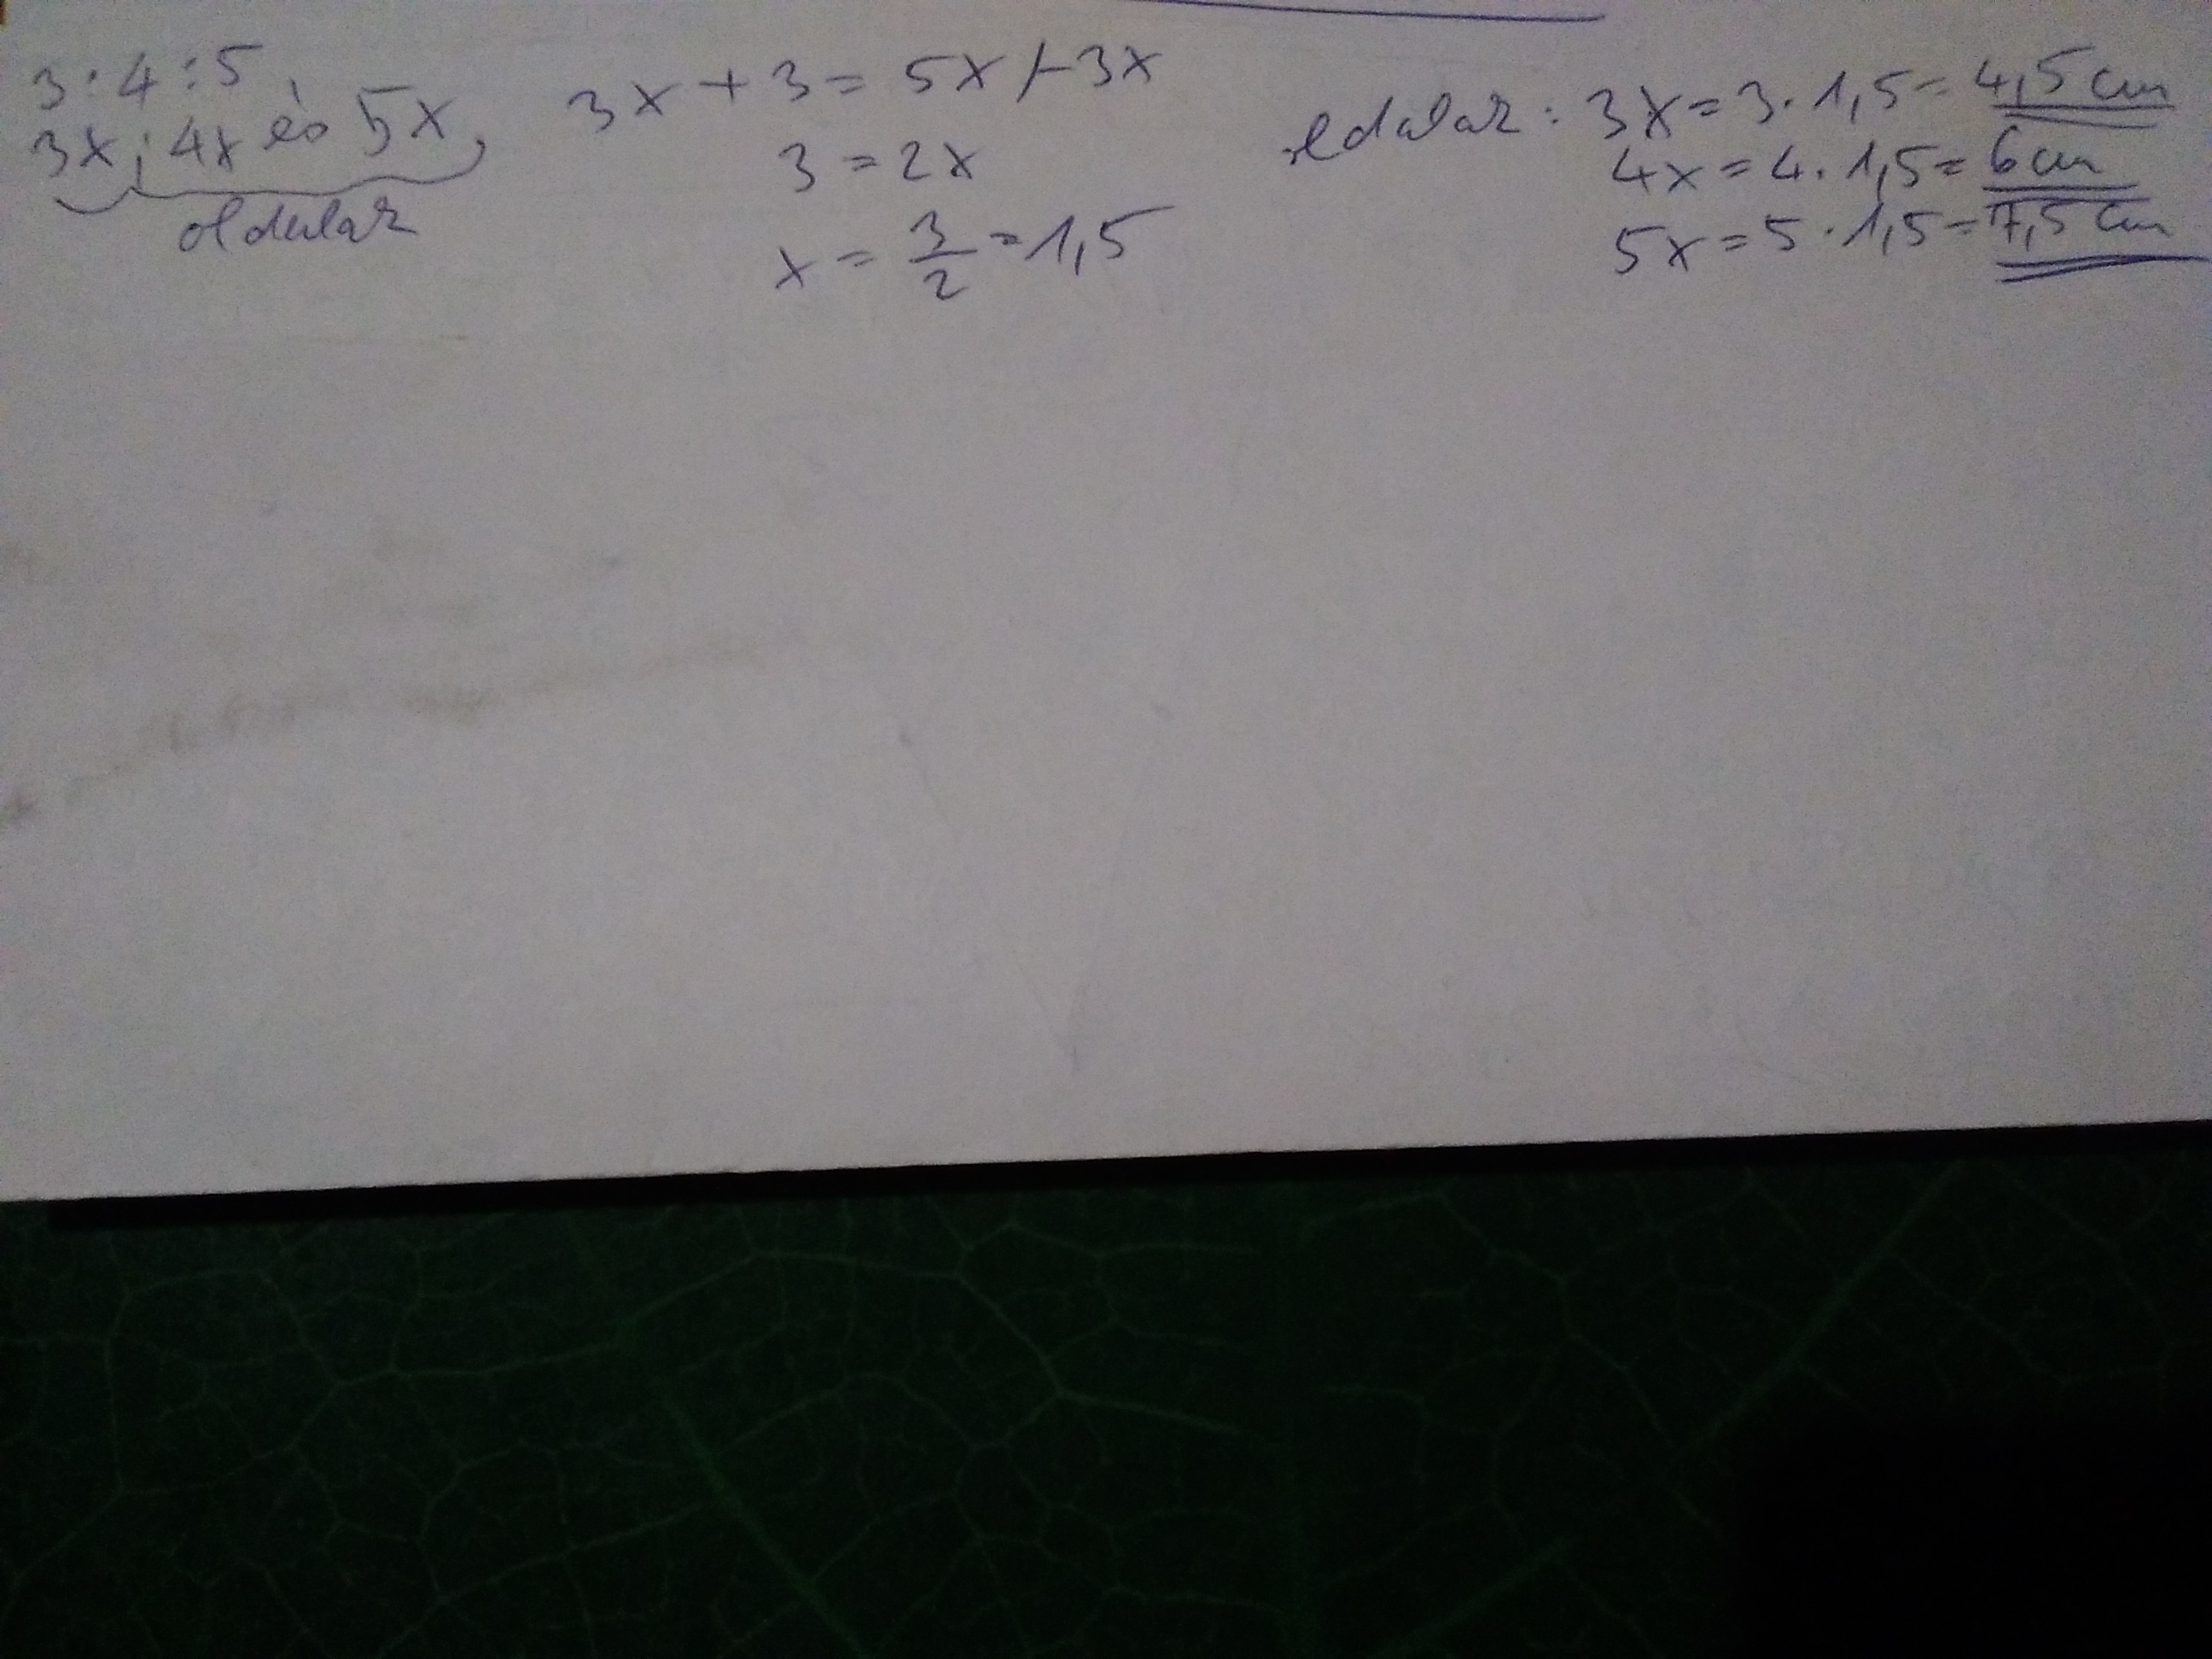 3:4:5
3x; 4x és 5x
oldalak
3x + 3 = 5x /-3x
3 = 2x
x = 3/2 = 1,5
oldalak: 3x = 3·1,5 = 4,5 cm
4x = 4·1,5 = 6 cm
5x = 5·1,5 = 7,5 cm